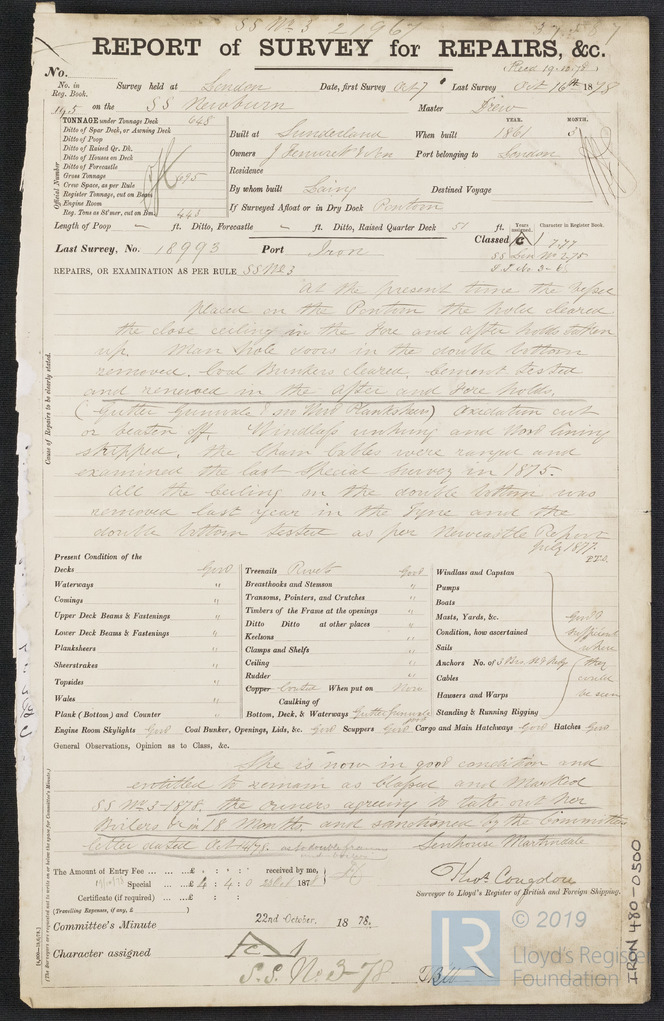 SS No 3 21967
REPORT of SURVEY for REPAIRS, &c.
Recd 19.12.78
No.
No. in Reg. Book. Survey held at London Date, first Survey Oct 7 Last Survey Oct 16th 1878
on the SS Newburn Master Drew
TONNAGE under Tonnage Deck 648
Ditto of Spar Deck, or Awning Deck
Ditto of Poop
Ditto of Raised Qr. Dk.
Ditto of Houses on Deck
Ditto of Forecastle
Gross Tonnage 695
Crew Space, as per Rule
Register Tonnage, cut on Beam
Engine Room
Reg. Tons as St'mer, cut on Bm 443
Official Number
YEAR. MONTH.
Built at Sunderland When built 1861 3
Owners J Fenwick & Son Port belonging to London
Residence
By whom built Laing Destined Voyage
If Surveyed Afloat or in Dry Dock Pontoon
Length of Poop ft. Ditto, Forecastle ft. Ditto, Raised Quarter Deck 51 ft.
Years assigned. Character in Register Book.
Last Survey, No. 18993 Port Iron Classed A 1 7.77
SS Lon No 2.75
REPAIRS, OR EXAMINATION AS PER RULE SS No 3
At the present time the Vessel
placed on the Pontoon the hold cleared
the close ceiling in the Fore and after holds taken
up. Man hole doors in the double bottom
removed. Coal Bunkers cleared, cement tested
and renewed in the after and Fore holds.
(Gutter Gunwale & on Wood Planksheer) Oxidation cut
or beaten off. Windlass unhung and Wood lining
stripped. the Chain Cables were ranged and
examined the last Special Survey in 1875.
All the Ceiling on the double bottom was
removed last year in the Tyne and the
double bottom tested as per Newcastle Report
July 1877.
P.T.O.
Cause of Repairs to be clearly stated.
Present Condition of the
Decks Good
Waterways "
Comings "
Upper Deck Beams & Fastenings "
Lower Deck Beams & Fastenings "
Planksheers "
Sheerstrakes "
Topsides "
Wales "
Plank (Bottom) and Counter "
Treenails Rivets Good
Breasthooks and Stemson "
Transoms, Pointers, and Crutches "
Timbers of the Frame at the openings "
Ditto Ditto at other places "
Keelsons "
Clamps and Shelfs "
Ceiling "
Rudder "
Copper Coated When put on Now
Caulking of
Bottom, Deck, & Waterways Gutter Gunwale good
Windlass and Capstan
Pumps
Boats
Masts, Yards, &c.
Condition, how ascertained
Sails
Anchors No. of
Cables
Hawsers and Warps
Standing & Running Rigging
Good &
sufficient
where
they
could
be seen
Engine Room Skylights Good Coal Bunker, Openings, Lids, &c. Good Scuppers Good Cargo and Main Hatchways Good Hatches Good
General Observations, Opinion as to Class, &c.
She is now in good condition and
entitled to remain as Classed and Marked
SS No 3-1878. the Owners agreeing to take out her
Boilers in 18 Months, and sanctioned by the Committee
letter dated Oct 1478.
Senhouse Martindale
The Amount of Entry Fee ... £ : : received by me,
Special ... £ 4 : 4 : 0 187
Certificate (if required) ... £ : :
(Travelling Expenses, if any, £ )
Thos. Congdon
Surveyor to Lloyd's Register of British and Foreign Shipping.
Committee's Minute 22nd October, 1878.
Character assigned A 1
S.S. No. 3-78
(The Surveyors are requested not to write on or below the space for Committee's Minute.)
IRON 480-0500
LR
© 2019
Lloyd's Register
Foundation